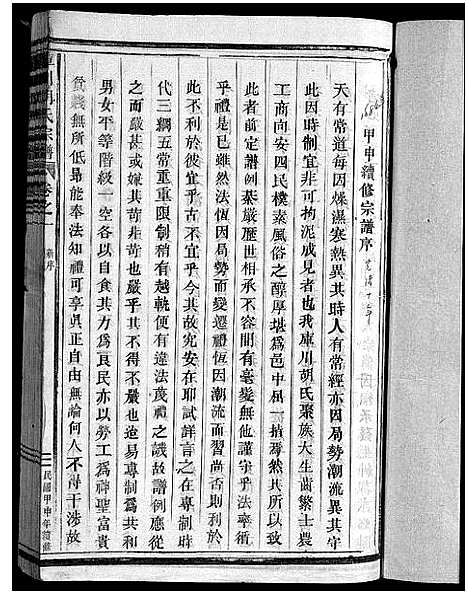 甲申續修宗譜序
天有常道每因燥濕寒熱異其時人有常經亦因局勢潮流異其守
此因時制宜非可拘泥成見者也我庫川胡氏聚族大生齒繁士農
工商向安四民樸素風俗之醇厚堪為邑中屈一指焉然其所以致
此者前定譜例綦嚴歷世相承不容間有毫髮變無他謹守乎法率循
乎禮是已雖然法恆因局勢而變遷禮恆因潮流而習尚否則利於
此不利於彼宜乎古不宜乎今其故究安在耶試詳言之在專制時
代三綱五常重重限制稍有越軌便有違法蔑禮之譏故譜例應從
之而嚴甚或嫌其苛非苛也嚴乎其不得不嚴也造易專制為共和
男女平等階級一空各以自食其力為良民亦以勞工為神聖富貴
貧賤無所低昂能奉法知禮可享真正自由無論何人不得干涉故
氏宗譜
卷之一
新序
民國甲申年續修